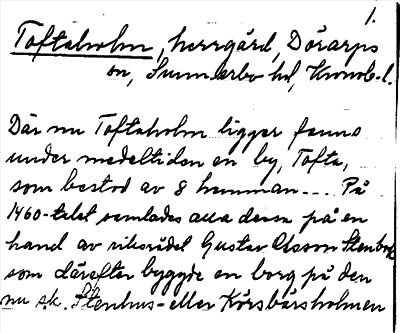 1.
Toftaholm, herrgård, Dörarps
sn, Sunnerbo hd, Kronob. l.
Där nu Toftaholm ligger fanns
under medeltiden en by, Tofta,
som bestod av 8 hemman.... På
1460-talet samlades alla dessa på en
hand av riksrådet Gustav Olsson Stenbock
som därefter byggde en borg på den
nu s.k. Stenhus- eller Körsbärsholmen